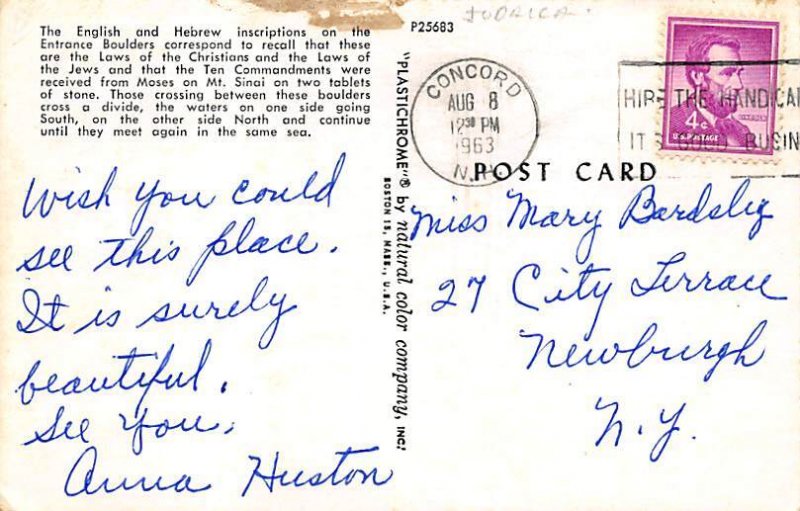 The English and Hebrew inscriptions on the
Entrance Boulders correspond to recall that these
are the Laws of the Christians and the Laws of
the Jews and that the Ten Commandments were
received from Moses on Mt. Sinai on two tablets
of stone. Those crossing between these boulders
cross a divide, the waters on one side going
South, on the other side North and continue
until they meet again in the same sea.
Wish you could
see this place.
It is surely
beautiful.
See you,
Anna Huston
"PLASTICHROME"® by natural color company, INC.
BOSTON 15, MASS., U.S.A.
P25683
JUDAICA
CONCORD
AUG 8
12³⁰ PM
1963
N.H.
HIRE THE HANDICAP
IT'S GOOD BUSIN
4¢
U.S. POSTAGE
POST CARD
Miss Mary Berdsliz
27 City Terrace
Newburgh
N.Y.